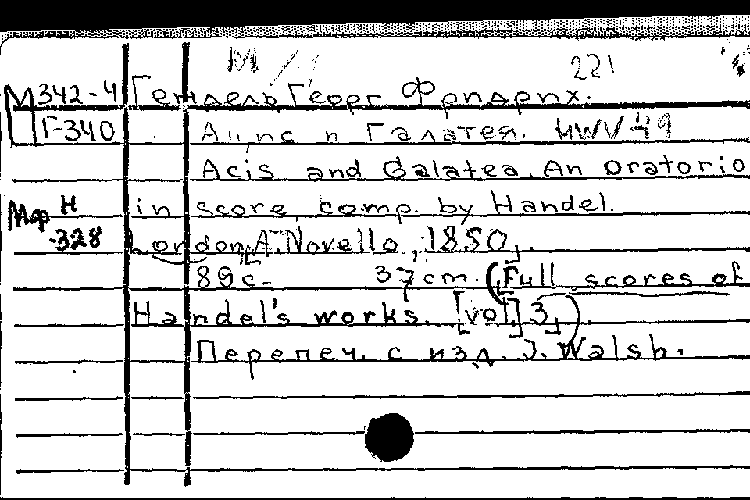 221
М342-4 Гендель Георг Фридрих.
Г-340 Ацис и Галатея. HWV 49
Acis and Galatea. An Oratorio
Мф Н in score, comp. by Handel.
-328 London, A. Novello, [1850].
89 с. 37 cm. (Full scores of
Handel's works. [vol] 3).
Перепеч. с изд. J. Walsh.